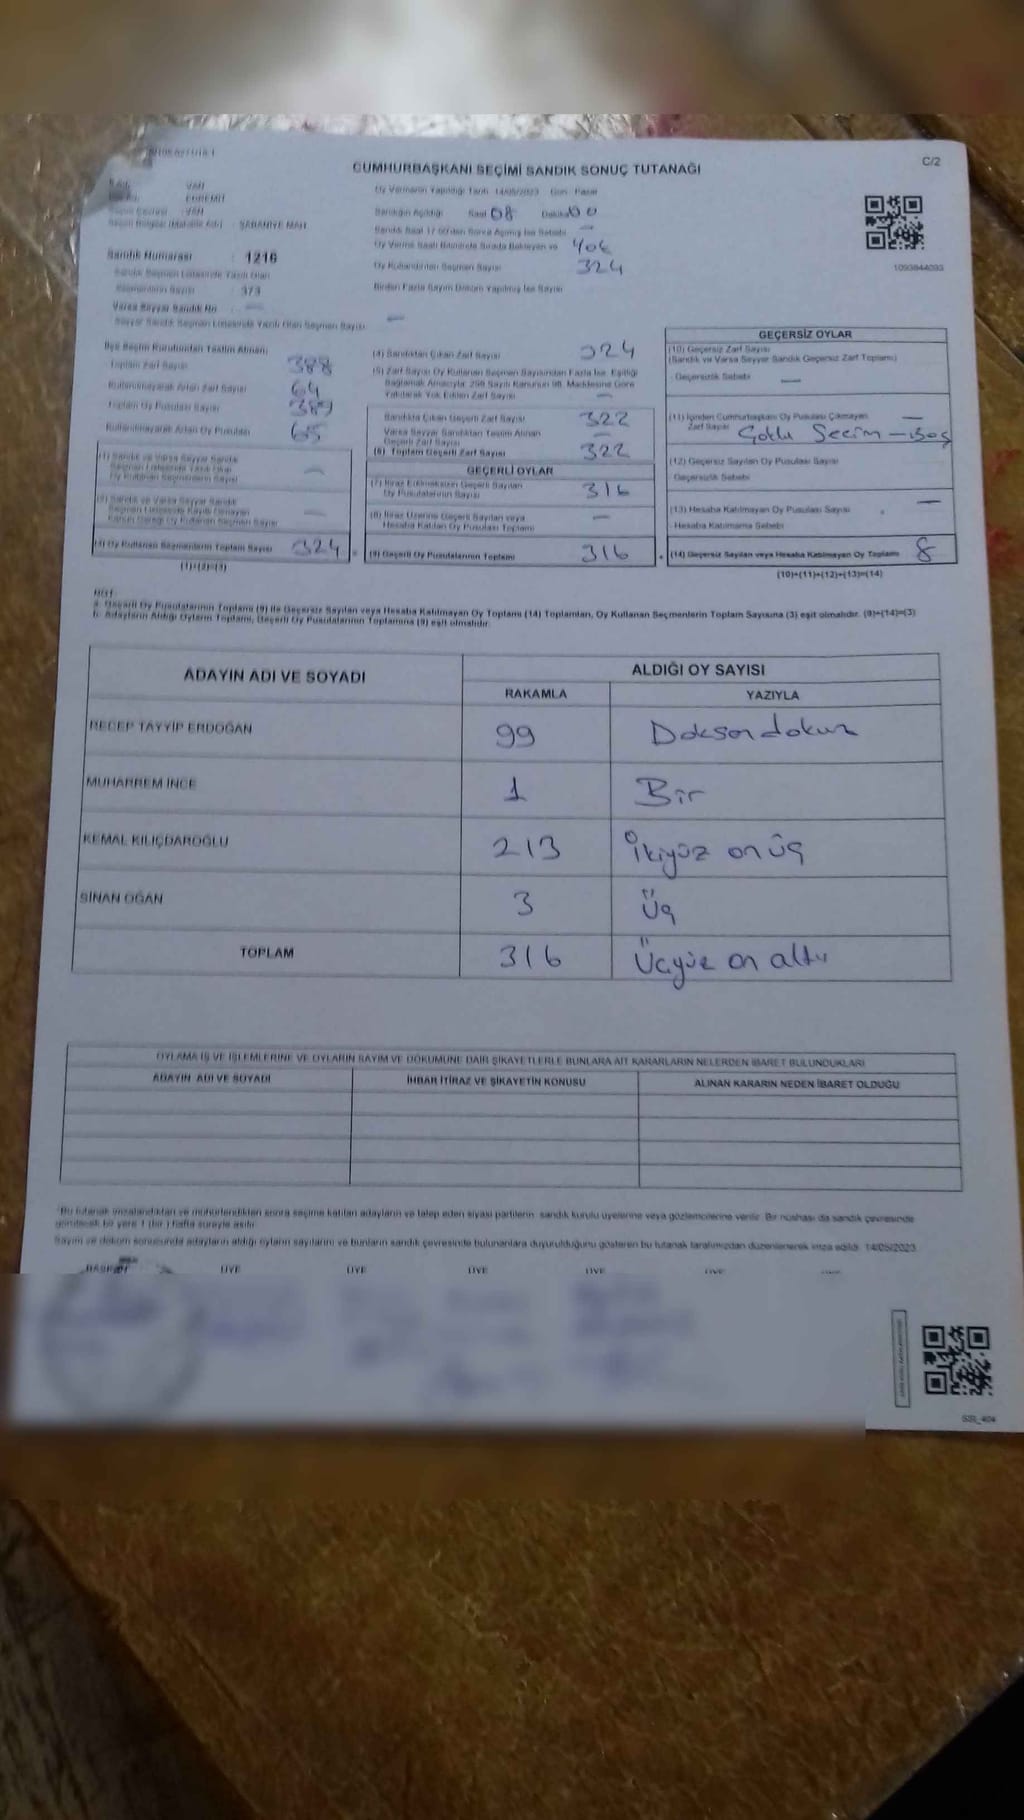 CUMHURBAŞKANI SEÇİMİ SANDIK SONUÇ TUTANAĞI
C/2
VAN
EDREMİT
VAN
ŞABANİYE MAH
Sandık Numarası : 1216
Sandık Seçmen Listesinde Yazılı Olan
Seçmenlerin Sayısı : 373
Varsa Seyyar Sandık No —
Seyyar Sandık Seçmen Listesinde Yazılı Olan Seçmen Sayısı —
Oy Vermenin Yapıldığı Tarih 14/05/2023 Gün Pazar
Sandığın Açıldığı Saat 08 Dakika 00
Oy Kullandırılan Seçmen Sayısı 324
Birden Fazla Sayım Döküm Yapılmış İse Sayısı
1093844093
İlçe Seçim Kurulundan Teslim Alınan
Toplam Zarf Sayısı 388
Kullanılmayarak Artan Zarf Sayısı 64
Toplam Oy Pusulası Sayısı 389
Kullanılmayarak Artan Oy Pusulası 65
(1) Sandık ve Varsa Seyyar Sandık
Seçmen Listesinde Yazılı Olan
Oy Kullanan Seçmenlerin Sayısı —
(2) Sandık ve Varsa Seyyar Sandık
Seçmen Listesinde Kayıtlı Olmayan
Kanun Gereği Oy Kullanan Seçmen Sayısı —
(3) Oy Kullanan Seçmenlerin Toplam Sayısı 324
(1)+(2)=(3)
(4) Sandıktan Çıkan Zarf Sayısı 324
(5) Zarf Sayısı Oy Kullanan Seçmen Sayısından Fazla İse, Eşitliği
Sağlamak Amacıyla, 298 Sayılı Kanunun 98. Maddesine Göre
Yakılarak Yok Edilen Zarf Sayısı —
Sandıkta Çıkan Geçerli Zarf Sayısı 322
Varsa Seyyar Sandıktan Teslim Alınan
Geçerli Zarf Sayısı —
(6) Toplam Geçerli Zarf Sayısı 322
GEÇERLİ OYLAR
(7) İtiraz Edilmeksizin Geçerli Sayılan
Oy Pusulalarının Sayısı 316
(8) İtiraz Üzerine Geçerli Sayılan veya
Hesaba Katılan Oy Pusulası Toplamı —
(9) Geçerli Oy Pusulalarının Toplamı 316
GEÇERSİZ OYLAR
(10) Geçersiz Zarf Sayısı
(Sandık ve Varsa Seyyar Sandık Geçersiz Zarf Toplamı)
Geçersizlik Sebebi —
(11) İçinden Cumhurbaşkanı Oy Pusulası Çıkmayan
Zarf Sayısı —
Çoklu Seçim - Boş
(12) Geçersiz Sayılan Oy Pusulası Sayısı
Geçersizlik Sebebi
(13) Hesaba Katılmayan Oy Pusulası Sayısı —
Hesaba Katılmama Sebebi
(14) Geçersiz Sayılan veya Hesaba Katılmayan Oy Toplamı 8
(10)+(11)+(12)+(13)=(14)
NOT:
a. Geçerli Oy Pusulalarının Toplamı (9) ile Geçersiz Sayılan veya Hesaba Katılmayan Oy Toplamı (14) Toplamları, Oy Kullanan Seçmenlerin Toplam Sayısına (3) eşit olmalıdır. (9)+(14)=(3)
b. Adayların Aldığı Oyların Toplamı, Geçerli Oy Pusulalarının Toplamına (9) eşit olmalıdır.
ADAYIN ADI VE SOYADI
ALDIĞI OY SAYISI
RAKAMLA YAZIYLA
RECEP TAYYİP ERDOĞAN 99 Doksandokuz
MUHARREM İNCE 1 Bir
KEMAL KILIÇDAROĞLU 213 İkiyüz onüç
SİNAN OĞAN 3 Üç
TOPLAM 316 Üçyüz on altı
OYLAMA İŞ VE İŞLEMLERİNE VE OYLARIN SAYIM VE DÖKÜMÜNE DAİR ŞİKAYETLERLE BUNLARA AİT KARARLARIN NELERDEN İBARET BULUNDUKLARI
ADAYIN ADI VE SOYADI İHBAR İTİRAZ VE ŞİKAYETİN KONUSU ALINAN KARARIN NEDEN İBARET OLDUĞU
Bu tutanak imzalandıktan ve mühürlendikten sonra seçime katılan adayların ve talep eden siyasi partilerin sandık kurulu üyelerine veya gözlemcilerine verilir. Bir nüshası da sandık çevresinde
görülecek bir yere 1 (bir) hafta süreyle asılır.
Sayım ve döküm sonucunda adayların aldığı oyların sayılarını ve bunların sandık çevresinde bulunanlara duyurulduğunu gösteren bu tutanak tarafımızdan düzenlenerek imza edildi. 14/05/2023
BAŞKAN ÜYE ÜYE ÜYE ÜYE ÜYE
SSI_404